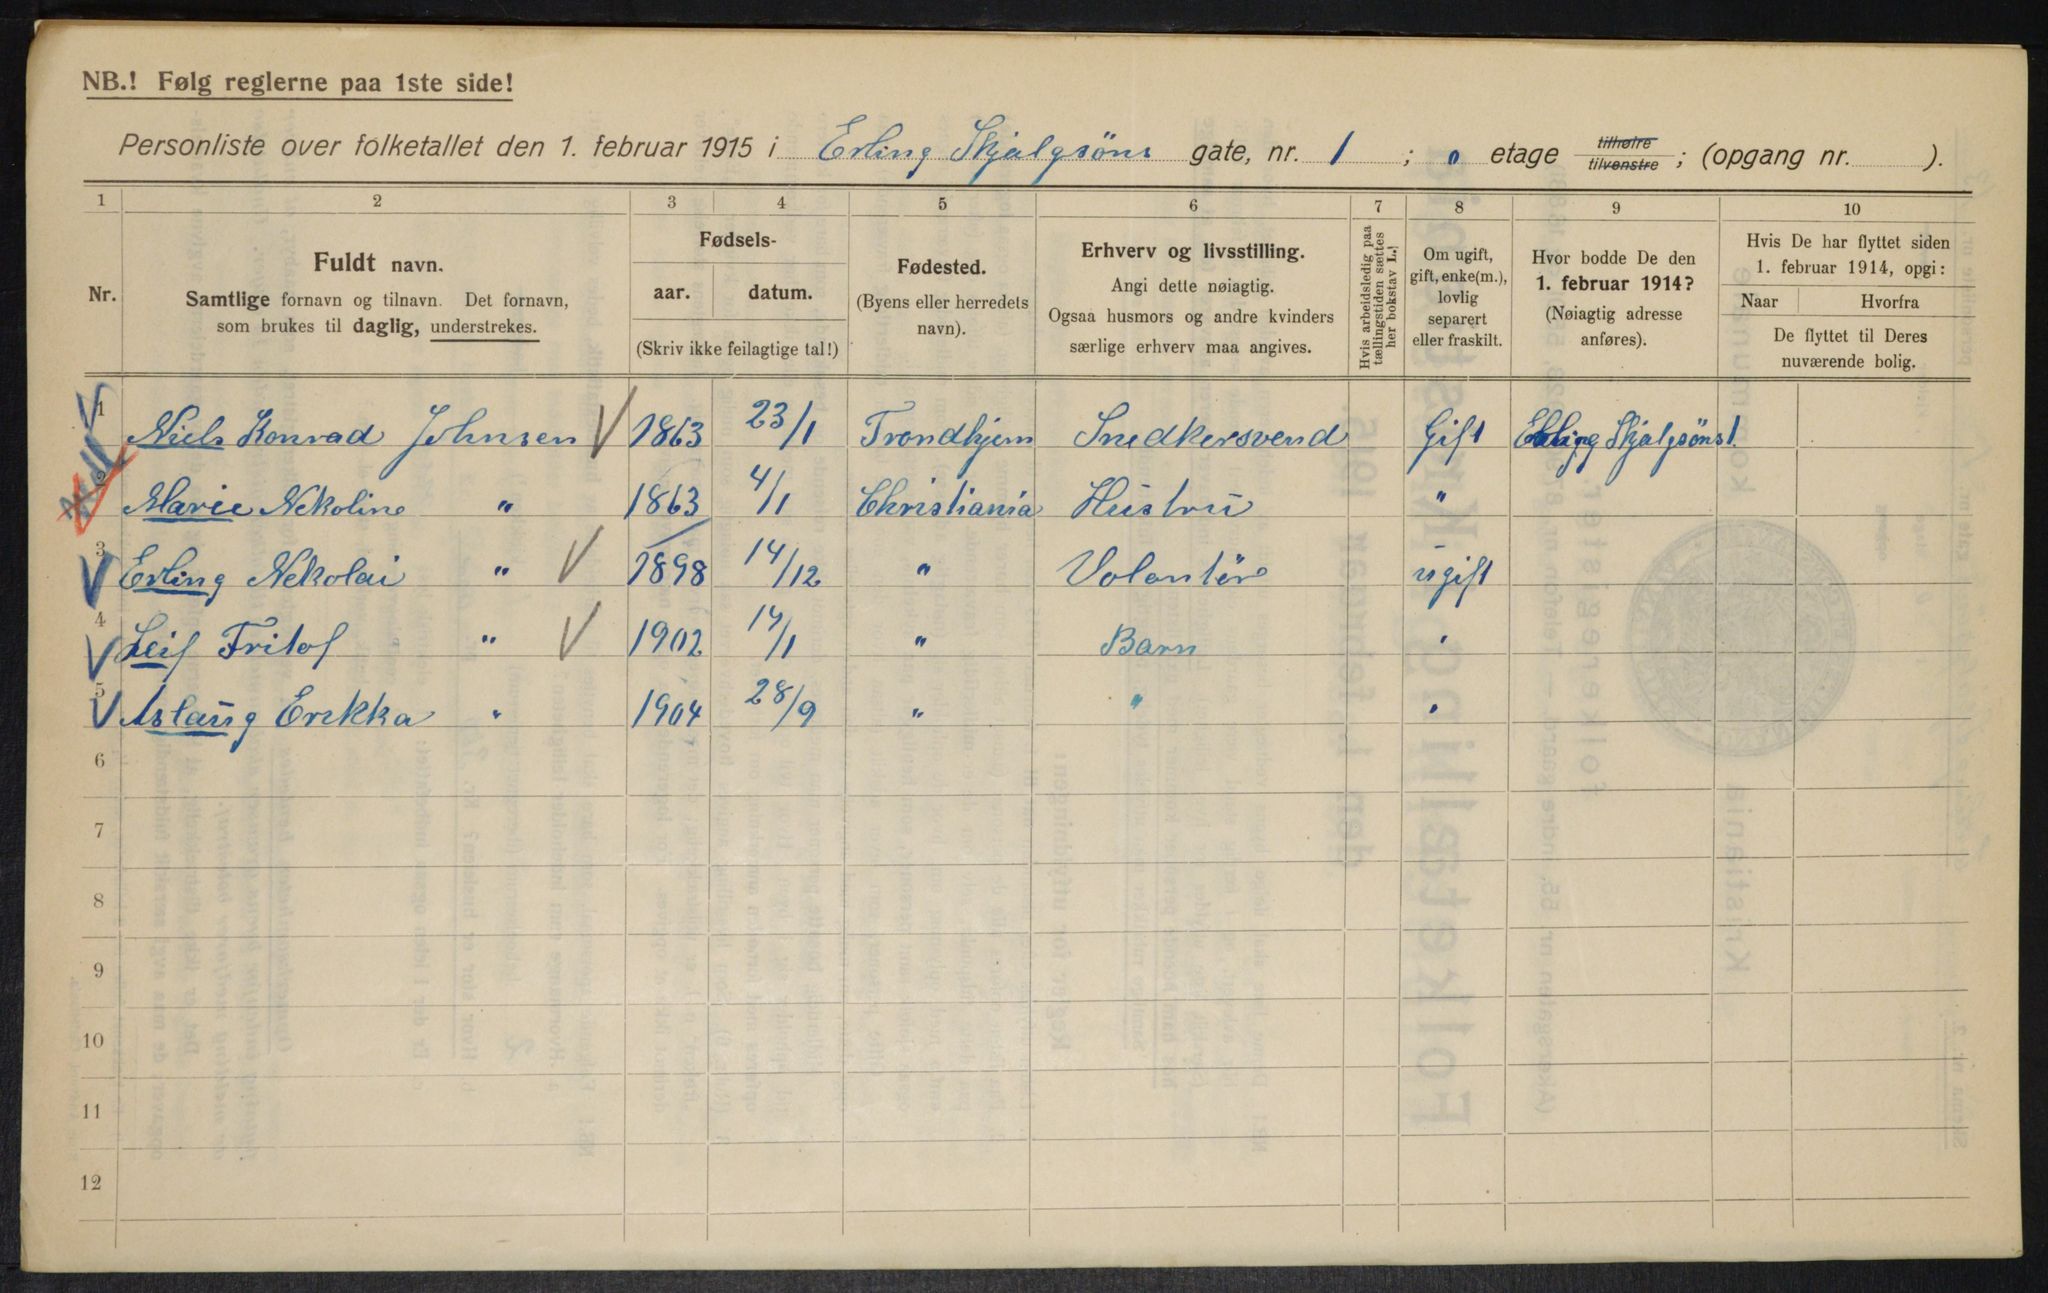 NB.! Følg reglerne paa 1ste side!
Personliste over folketallet den 1. februar 1915 i Erling Skjalgsöns gate, nr. 1 ; 0 etage tilhøire tilvenstre ; (opgang nr. ).
1 2 3 4 5 6 7 8 9 10
Nr.
Fuldt navn.
Samtlige fornavn og tilnavn. Det fornavn,
som brukes til daglig, understrekes.
Fødsels-
aar. datum.
(Skriv ikke feilagtige tal!)
Fødested.
(Byens eller herredets
navn).
Erhverv og livsstilling.
Angi dette nøiagtig.
Ogsaa husmors og andre kvinders
særlige erhverv maa angives.
Hvis arbeidsledig paa
tællingstiden sættes
her bokstav L.
Om ugift,
gift, enke(m.),
lovlig
separert
eller fraskilt.
Hvor bodde De den
1. februar 1914?
(Nøiagtig adresse
anføres).
Hvis De har flyttet siden
1. februar 1914, opgi:
Naar Hvorfra
De flyttet til Deres
nuværende bolig.
1 Niels Konrad Johnsen 1863 23/1 Trondhjem Snedkersvend Gift Erling Skjalgsöns 1.
2 Marie Nekoline " 1863 4/1 Christiania Hustru "
3 Erling Nekolai " 1898 14/12 " Volontör ugift
4 Leif Fritof " 1902 14/1 " Barn "
5 Aslaug Erekka " 1904 28/9 " " "
6
7
8
9
10
11
12